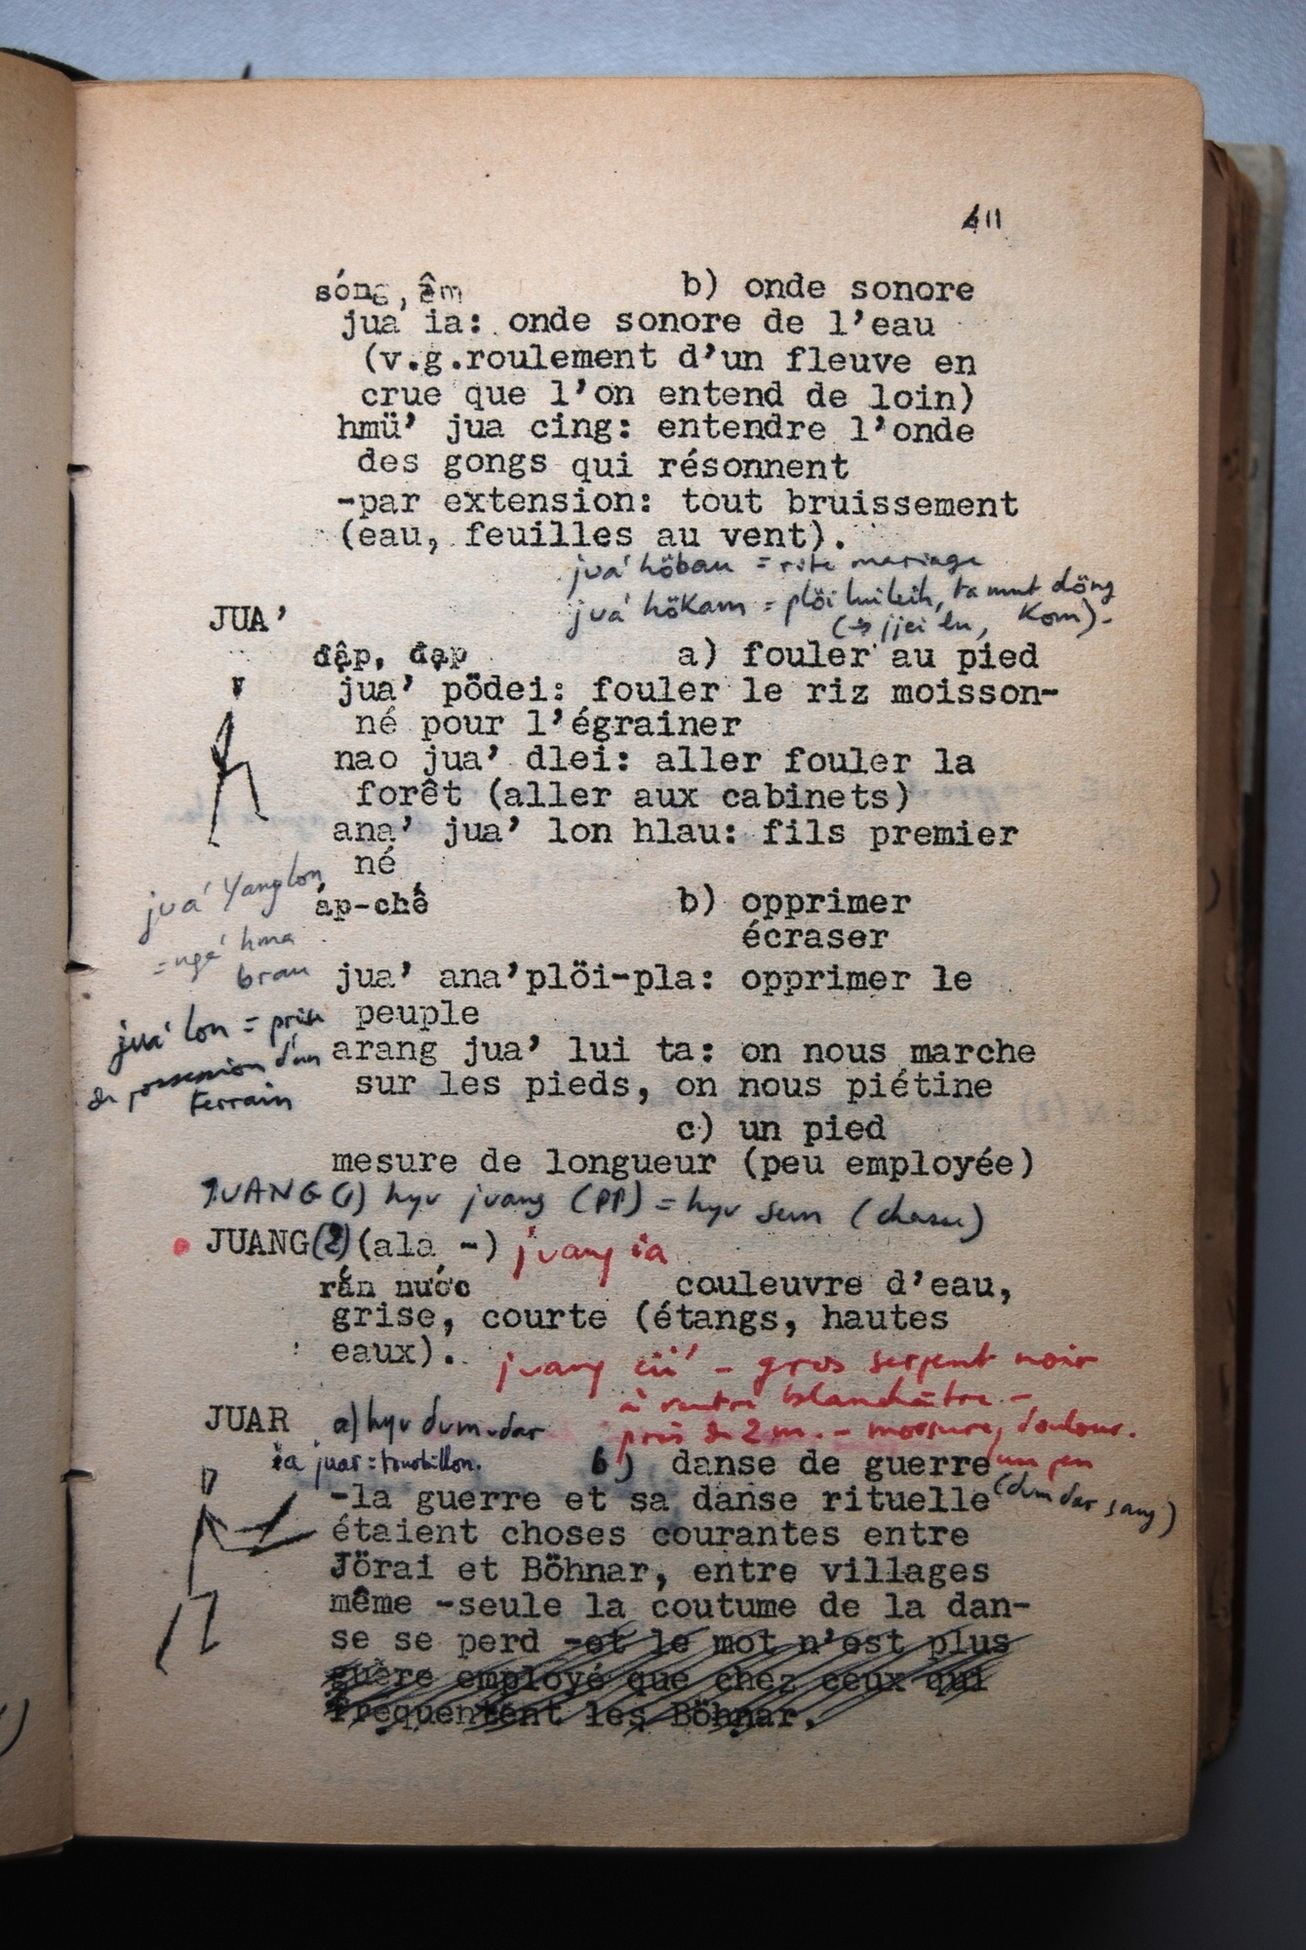 411
sóng, âm b) onde sonore
jua ia: onde sonore de l'eau
(v.g.roulement d'un fleuve en
crue que l'on entend de loin)
hmü' jua cing: entendre l'onde
des gongs qui résonnent
-par extension: tout bruissement
(eau, feuilles au vent).
jua' höbau = rite mariage
jua' hökam = plöi lui leih, ta mut döng
Kom).
JUA'
đập, đạp a) fouler au pied
jua' pödei: fouler le riz moisson-
né pour l'égrainer
nao jua' dlei: aller fouler la
forêt (aller aux cabinets)
ana' jua' lon hlau: fils premier
né
jua' Yang lon
áp-chế b) opprimer
écraser
= ngă' hma
brau
jua' ana'plöi-pla: opprimer le
peuple
jua' lon = prise
de possession d'un
terrain
arang jua' lui ta: on nous marche
sur les pieds, on nous piétine
c) un pied
mesure de longueur (peu employée)
JUANG (1) hyu juang (PP) = hyu (chasse)
JUANG(2)(ala -) juang ia
rắn nước couleuvre d'eau,
grise, courte (étangs, hautes
eaux).
juang - gros serpent noir
à ventre blanchâtre -
près de 2 m. - morsure, doulour.
un peu
JUAR a) hyu dum-dar
ia juar = tourbillon.
b) danse de guerre (dum dar sang)
-la guerre et sa danse rituelle
étaient choses courantes entre
Jörai et Böhnar, entre villages
même -seule la coutume de la dan-
se se perd -et le mot n'est plus
guère employé que chez ceux qui
frequentent les Böhnar.